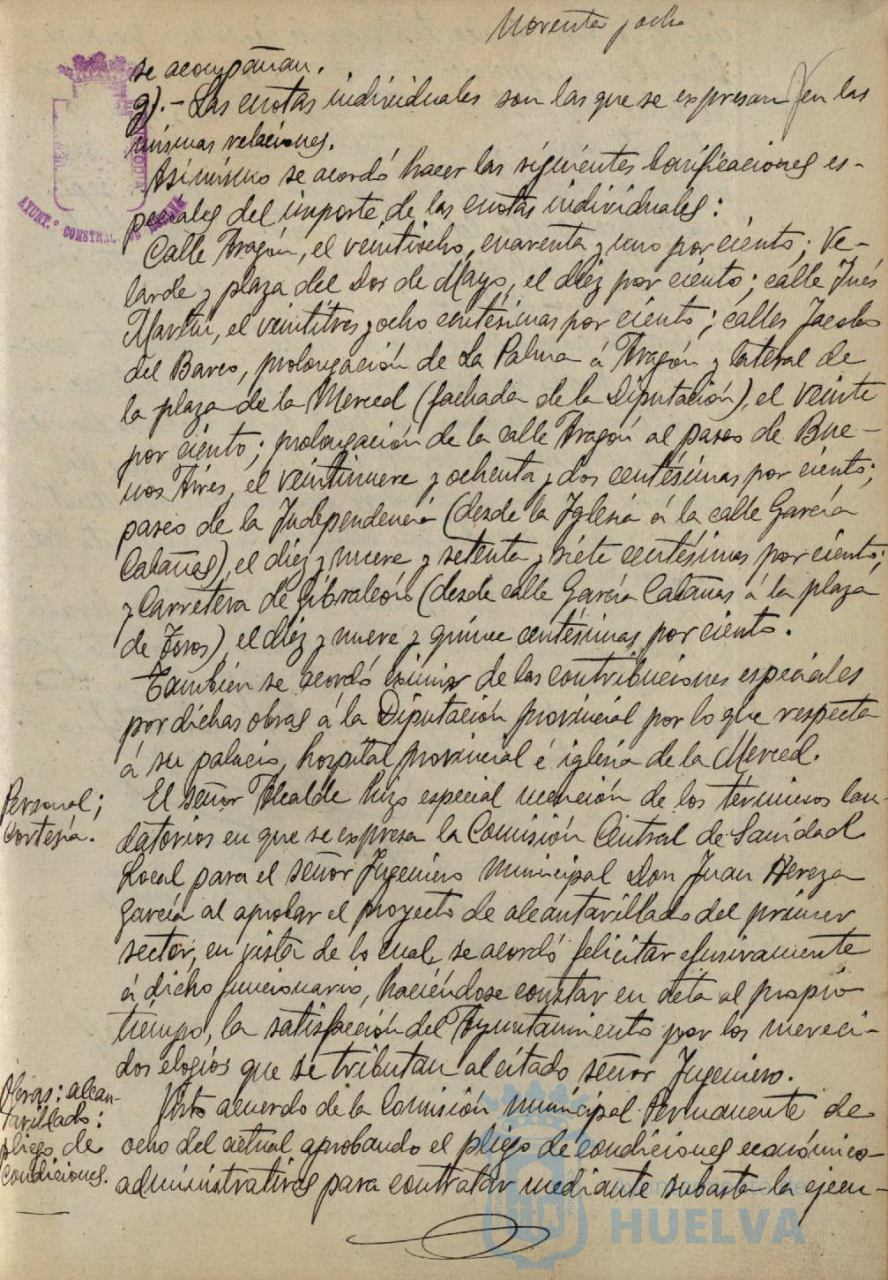 Noventa y ocho
se acompañan.
g).- Las cuotas individuales son las que se expresan en las
mismas relaciones.
Asimismo se acordó hacer las siguientes bonificaciones es-
peciales del importe de las cuotas individuales:
Calle Aragón, el veintiocho, cuarenta y uno por ciento; Ve-
larde y plaza del Dos de Mayo, el diez por ciento; calle Inés
Martín, el veintitres y ocho centésimas por ciento; calles Jacobo
del Barco, prolongación de La Palma á Aragón y lateral de
la plaza de la Merced (fachada de la Diputación), el veinte
por ciento; prolongación de la calle Aragón al paseo de Bue-
nos Aires, el veintinueve y ochenta y dos centésimas por ciento;
paseo de la Independencia (desde la Iglesia á la calle García
Cabañas), el diez y nueve y setenta y siete centésimas por ciento;
y Carretera de Gibraleón (desde calle García Cabañas á la plaza
de Toros), el diez y nueve y quince centésimas por ciento.
También se acordó eximir de las contribuciones especiales
por dichas obras á la Diputación provincial por lo que respecta
á su palacio, hospital provincial é iglesia de la Merced.
Personal;
cortesía.
El señor Alcalde hizo especial mención de los términos lau-
datorios en que se expresa la Comisión Central de Sanidad
Local para el señor Ingeniero municipal Don Juan Hereza
García al aprobar el proyecto de alcantarillado del primer
sector, en vista de lo cual, se acordó felicitar efusivamente
á dicho funcionario, haciéndose constar en acta al propio
tiempo, la satisfacción del Ayuntamiento por los mereci-
dos elogios que se tributan al citado señor Ingeniero.
Obras: alcan-
tarillado:
pliego de
condiciones.
Visto acuerdo de la Comisión municipal Permanente de
ocho del actual aprobando el pliego de condiciones económico-
administrativas para contratar mediante subasta la ejecu-
AYUNT.º CONSTNAL DE HUELVA
HUELVA